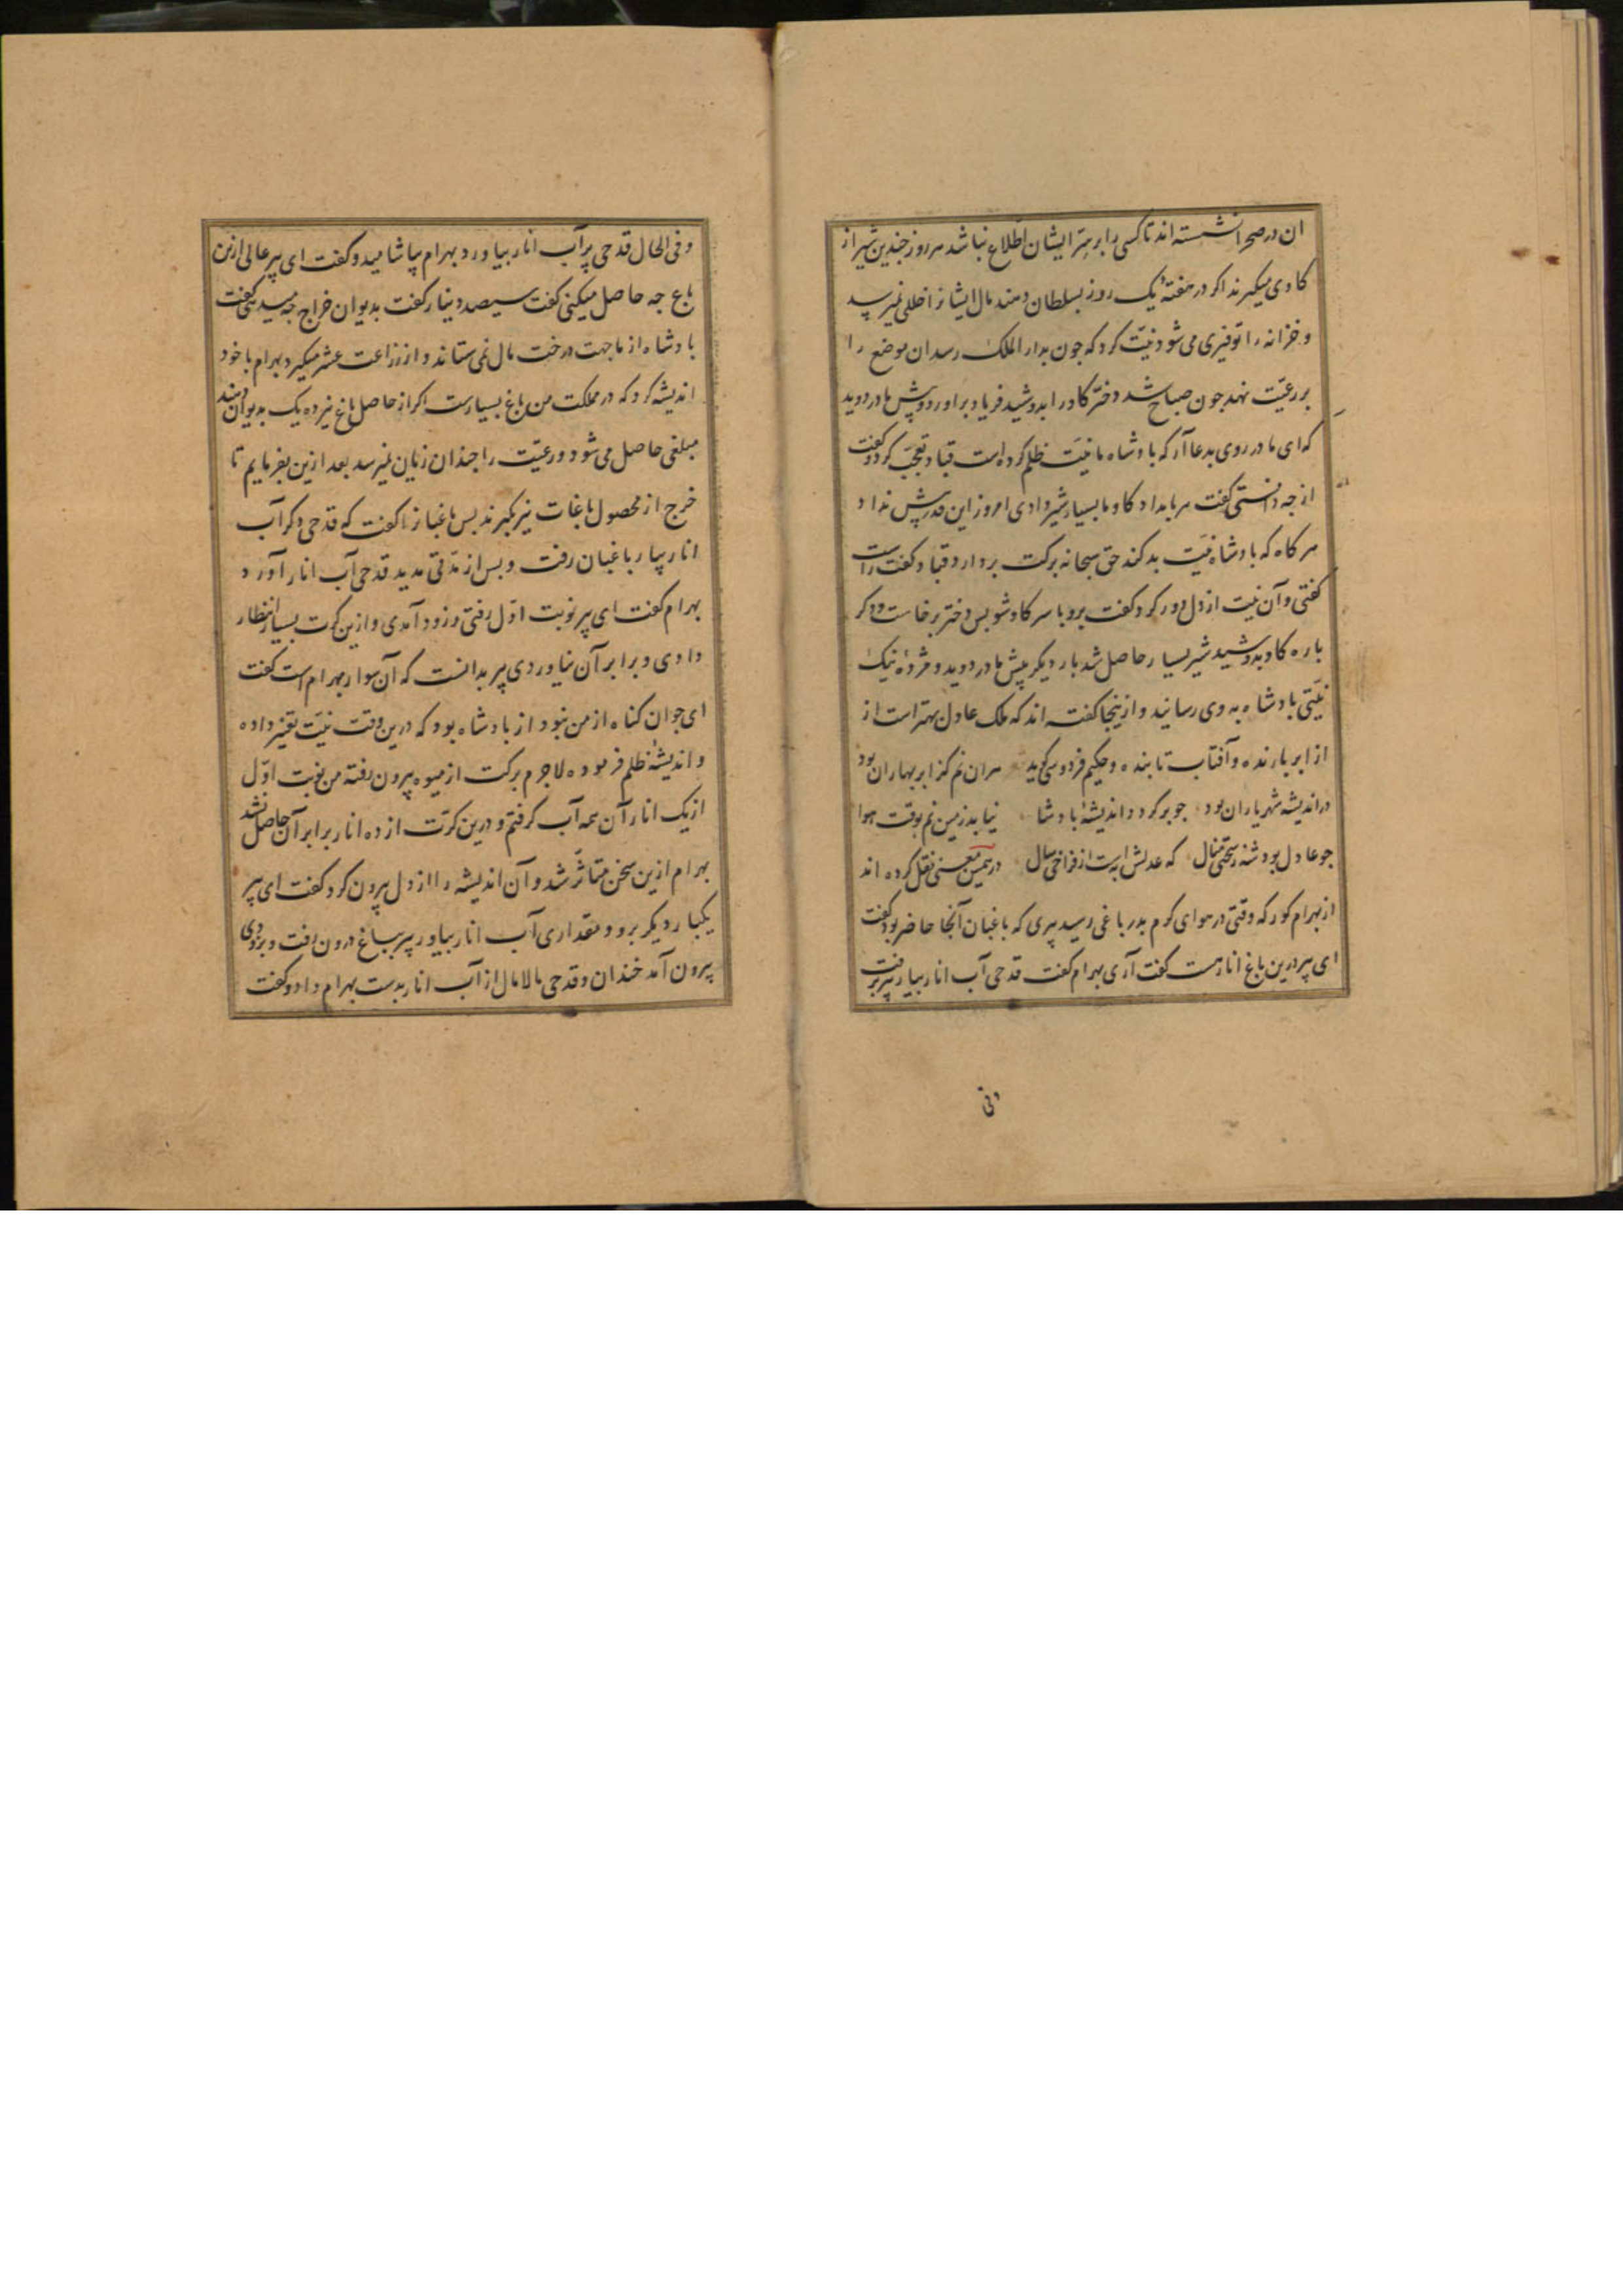 ان در صحرا نشسته اند تا کسی را بر سِرّ ایشان اطّلاع نباشد هر روز جندین شیر از
کاوی میکیرند اکر در هفتهٔ یک روز بسلطان دهند مال ایشانرا خللی نمیرسد
و خزانه را توفیری می شود نیّت کرد که جون بدار الملک رسد ان موضع را
بر رعیّت نهد جون صباح شد دختر کاو را بدوشید فریاد براورد و پیش مادر دوید
که ای مادر روی بدعا آر که بادشاه ما نیّت ظلم کرده است قباد تعجّب کرد و کفت
از جه دانستی کفت هر بامداد کاو ما بسیار شیر دادی امروز این قدر بیش نداد
هر کاه که بادشاه نیّت بد کند حق سبحانه برکت بردارد قباد کفت راست
کفتی و آن نیت از دل دور کرد کفت برو با سر کاو شو بس دختر برخاست و دکر
باره کاو بدوشید شیر بسیار حاصل شد بار دیکر پیش مادر دوید و مژدهٔ نیک
نیّتی بادشاه به وی رسانید و ازینجا کفته اند که ملک عادل بهتر است از
از ابر بارنده و آفتاب تابنده و حکیم فردوسی کوید هران نم کز ابر بهاران بود
در اندیشه شهریاران بود جو بر کردد اندیشهٔ بادشا نیابد زمین نم بوقت هوا
جو عادل بود شه ز سختی منال که عدلش به است از فراخی سال در همین معنی نقل کرده اند
از بهرام کور که وقتی در هوای کرم بدر باغی رسید پیری که باغبان آنجا حاضر بود کفت
ای پیر درین باغ انار هست کفت آری بهرام کفت قدحی آب انار بیار پیر برفت
وفی
وفی الحال قدحی پر آب انار بیاورد بهرام بیاشامید و کفت ای پیر عالی ازین
باغ جه حاصل میکنی کفت سیصد دینار کفت بدیوان خراج جه میدهی کفت
بادشاه از ما جهت درخت مال نمی ستاند و از زراعت عشر میکیرد بهرام با خود
اندیشه کرد که در مملکت من باغ بسیارست اکر از حاصل باغ نیز ده یک بدیوان دهند
مبلغی حاصل می شود و رعیّت را جندان زیان نمیرسد بعد ازین بفرمایم تا
خرج از محصول باغات نیز بکیرند بس باغبانرا کفت که قدحی دکر آب
انار بیار باغبان رفت و بس از مدّتی مدید قدحی آب انار آورد
بهرام کفت ای پیر نوبت اوّل رفتی و زود آمدی و ازین کرت بسیار انتظار
دادی و برابر آن نیاوردی پیر بدانست که آن سوار بهرام است کفت
ای جوان کناه از من نبود از بادشاه بود که درین وقت نیّت تغیّر داده
و اندیشهٔ ظلم فرموده لاجرم برکت از میوه بیرون رفته من نوبت اوّل
از یک انار آن همه آب کرفتم و درین کرّت از ده انار برابر آن حاصل نشد
بهرام ازین سخن متاثّر شد و آن اندیشه را از دل بیرون کرد کفت ای پیر
یکبار دیکر برو و مقداری آب انار بیاور پیر بباغ درون رفت و بزودی
بیرون آمد خندان و قدحی مالامال از آب انار بدست بهرام داد و کفت